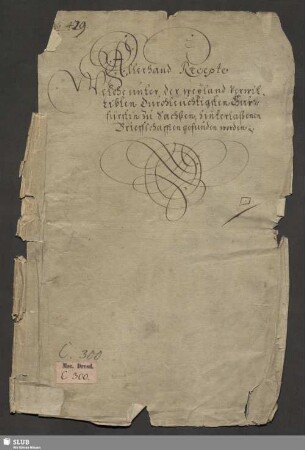 No. 429
Allerhand Recepte
Welche unter der weyland verwit-
tibten Durchleuchtigsten Chur-
fürstin zu Sachsen, hinterlaßenen
Brieffschafften gefunden worden.
C. 300.
Msc. Dresd.
C 300.
SLUB
Wir führen Wissen.